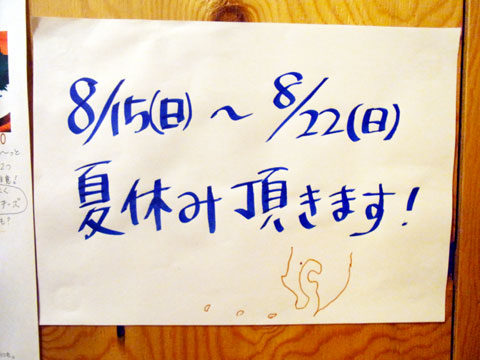 8/15(日)～8/22(日)
夏休み頂きます!